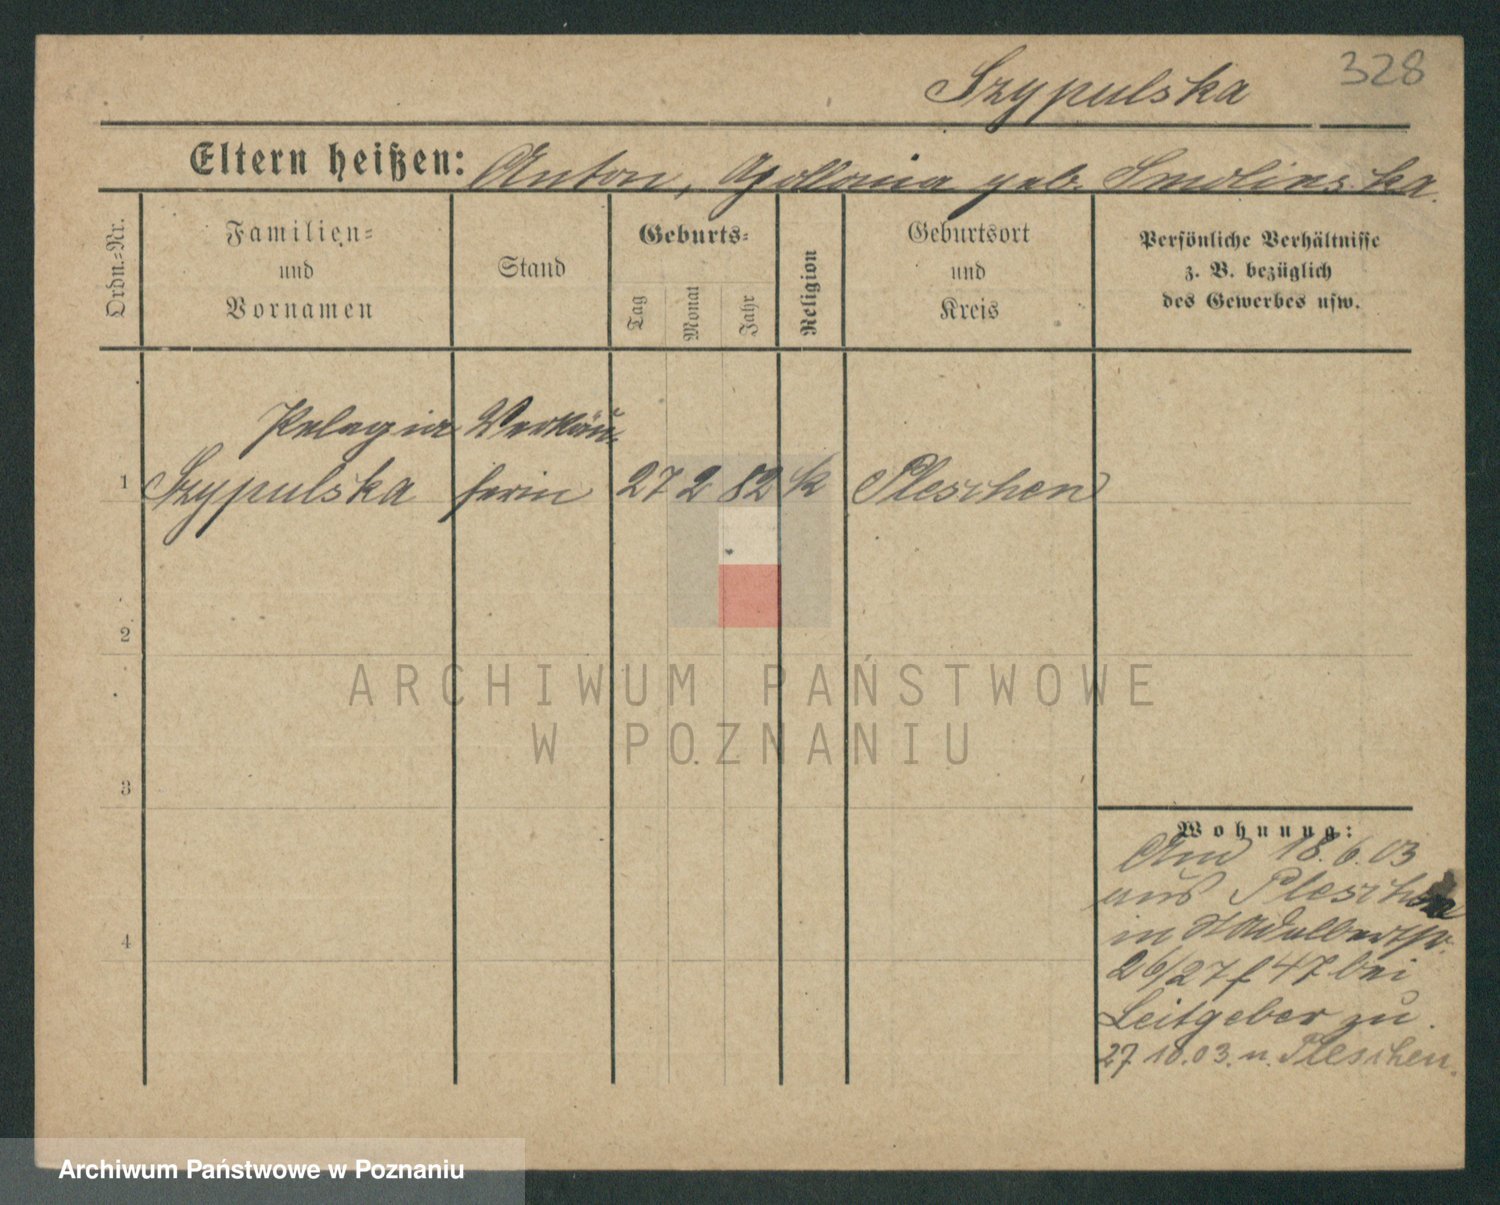 328
Szypulska
Eltern heißen: Anton, Apollonia geb. Smolinska.
Ordn.-Nr.
Familien-
und
Vornamen
Stand
Geburts-
Tag
Monat
Jahr
Religion
Geburtsort
und
Kreis
Persönliche Verhältnisse
z. B. bezüglich
des Gewerbes usw.
Pelagia Verkäu-
1 Szypulska ferin 27 2 82 k Pleschen
2
ARCHIWUM PAŃSTWOWE
W POZNANIU
3
4
Wohnung:
18.6.03
aus Pleschen
in
26/27 f 47 bei
Leitgeber zu.
27.10.03. n. Pleschen.
Archiwum Państwowe w Poznaniu